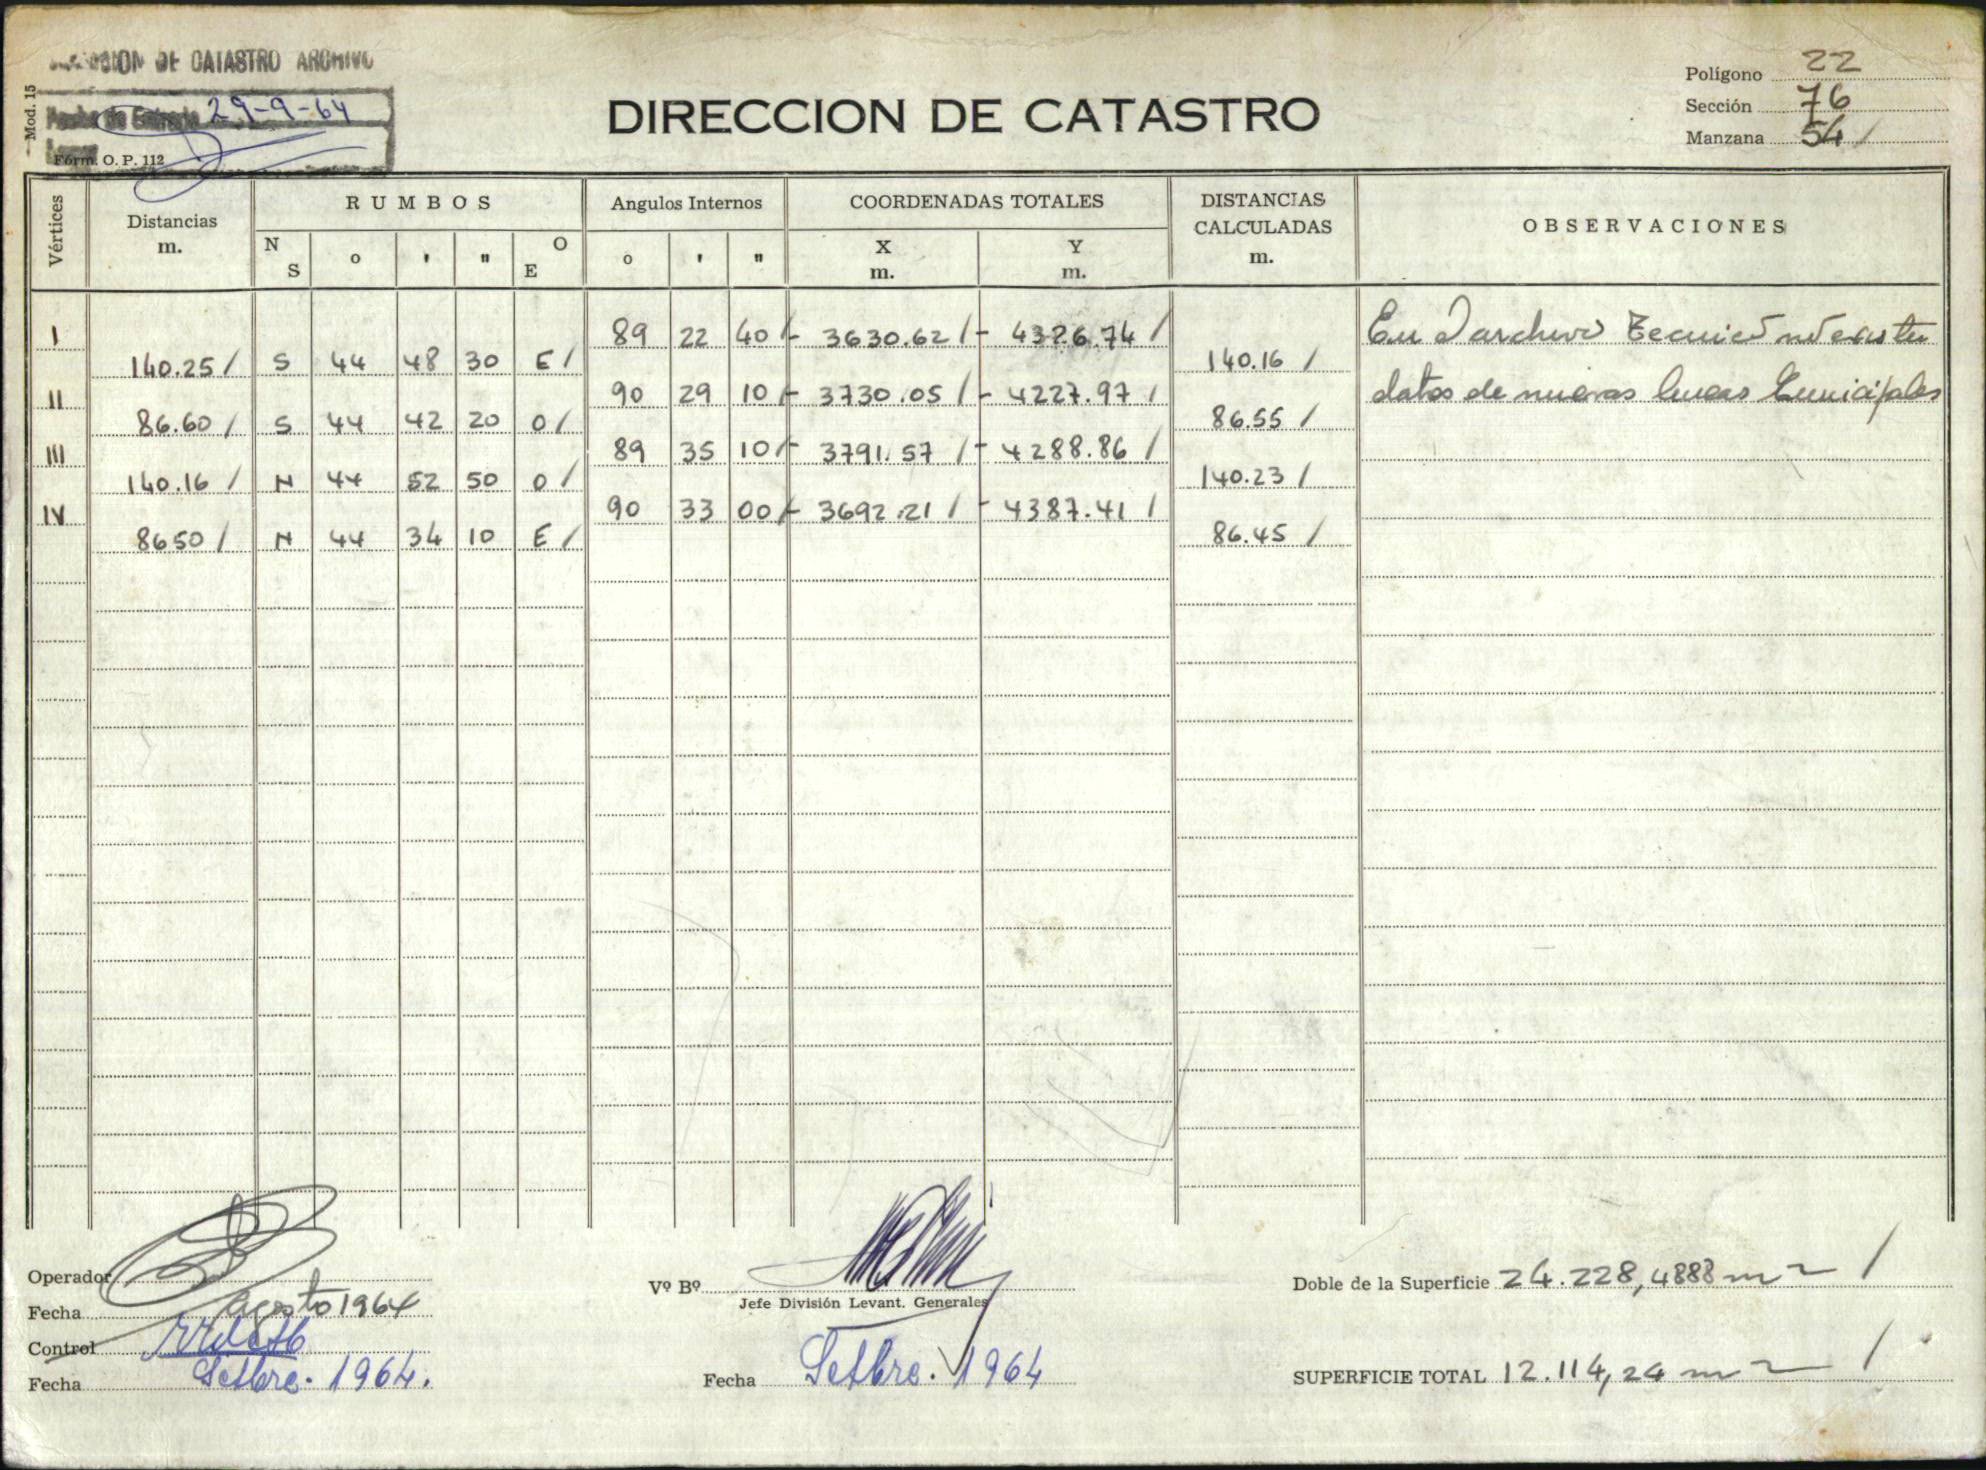 DIRECCION DE CATASTRO ARCHIVO
Mod. 15
Fecha de Entrada 29-9-64
Form. O. P. 112
DIRECCION DE CATASTRO
Polígono 22
Sección 76
Manzana 54 /
Vértices
Distancias m.
RUMBOS
N S ° ' " O E
Angulos Internos
° ' "
COORDENADAS TOTALES
X m. Y m.
DISTANCIAS CALCULADAS m.
OBSERVACIONES
I 89 22 40 /- 3630.62 /- 4326.74 /
140.25 / S 44 48 30 E / 140.16 /
II 90 29 10 /- 3730.05 /- 4227.97 /
86.60 / S 44 42 20 O / 86.55 /
III 89 35 10 /- 3791.57 /- 4288.86 /
140.16 / N 44 52 50 O / 140.23 /
IV 90 33 00 /- 3692.21 /- 4387.41 /
86 50 / N 44 34 10 E / 86.45 /
En archivo Tecnico no existen
datos de nuevas lineas Municipales
Operador
Fecha Agosto 1964
Control
Fecha Setbre. 1964.
Vº Bº
Jefe División Levant. Generales
Fecha Setbre. 1964
Doble de la Superficie 24.228,4888 m2 /
SUPERFICIE TOTAL 12.114,24 m2 /